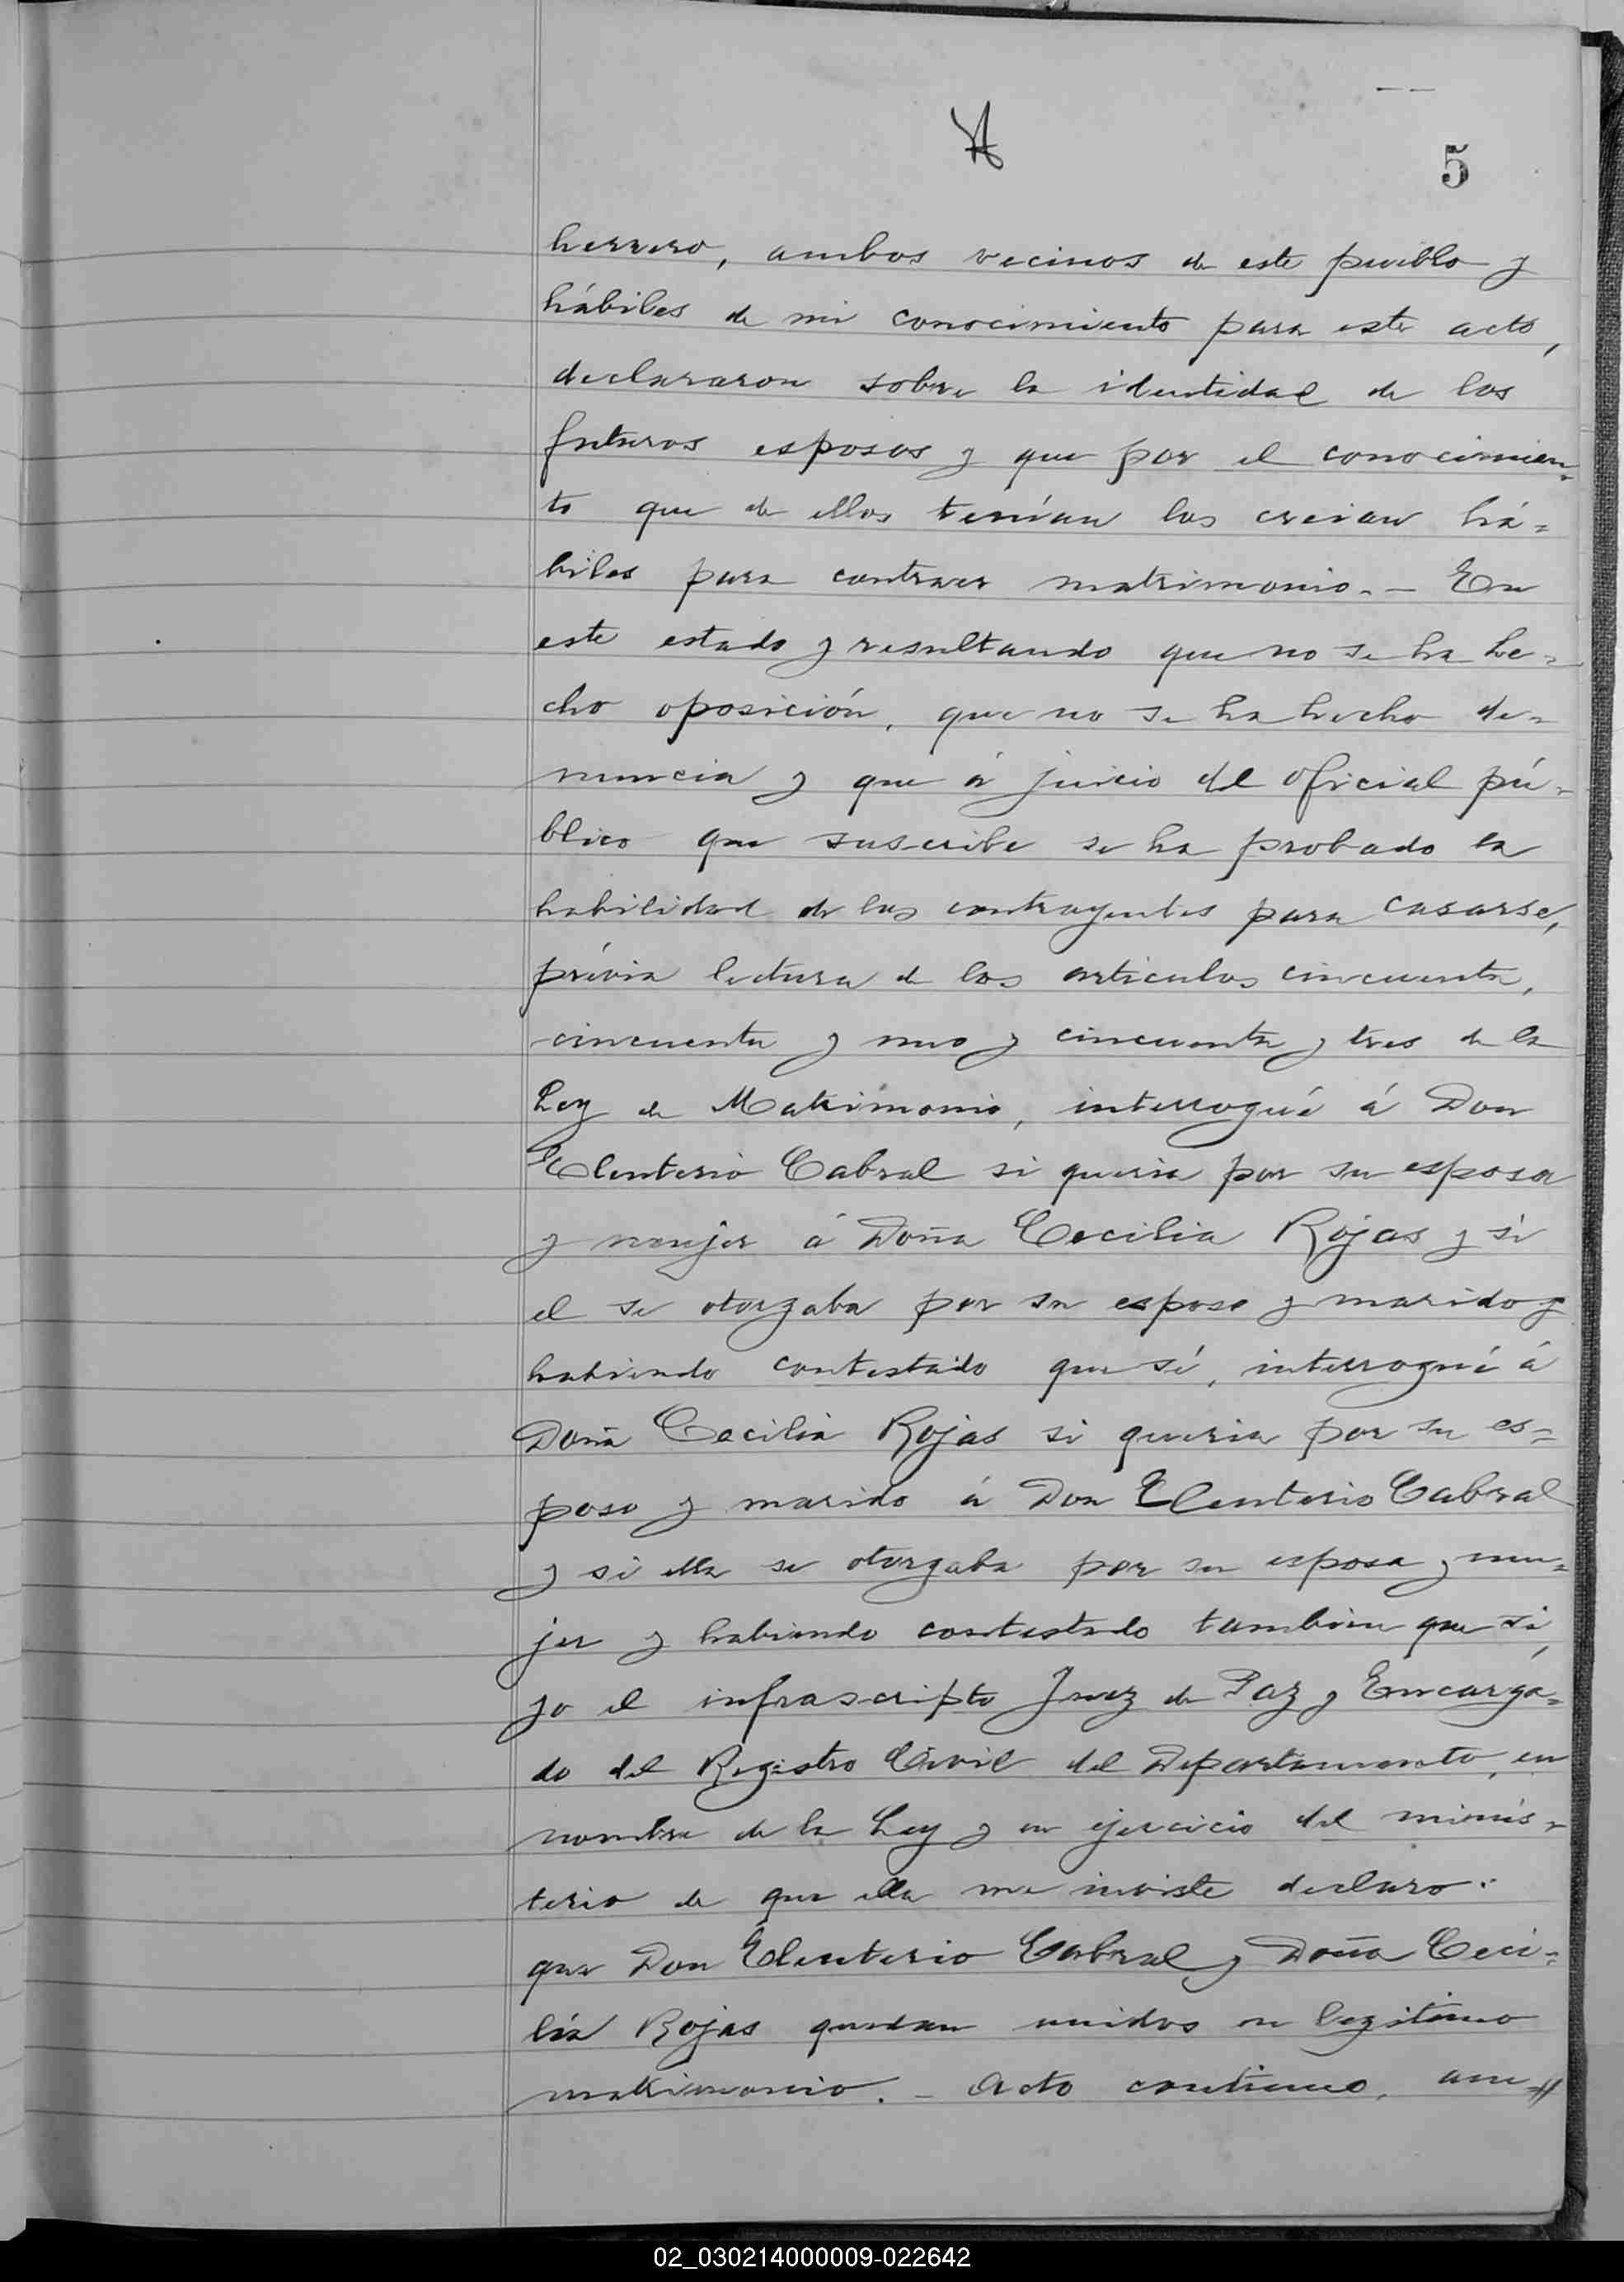 5
herrero, ambos vecinos de este pueblo y
hábiles de mi conocimiento para este acto,
declararon sobre la identidad de los
futuros esposos y que por el conocimien=
to que de ellos tenían los creian há=
biles para contraer matrimonio. — En
este estado y resultando que no se ha he=
cho oposición, que no se ha hecho de=
nuncia y que á juicio del oficial pú=
blico que suscribe se ha probado la
habilidad de los contrayentes para casarse,
prévia lectura de los articulos cincuenta,
cincuenta y uno y cincuenta y tres de la
Ley de Matrimonio, interrogué á Don
Eleuterio Cabral si queria por su esposa
y mujer á Doña Cecilia Rojas y si
el se otorgaba por su esposo y marido y
habiendo contestado que sí, interrogué á
Doña Cecilia Rojas si queria por su es=
poso y marido á Don Eleuterio Cabral
y si ella se otorgaba por su esposa y mu=
jer y habiendo contestado tambien que si,
yo el infrascripto Juez de Paz y Encarga=
do del Registro Civil del Departamento, en
nombre de la Ley y en ejercicio del minis=
terio de que ella me inviste declaro:
que Don Eleuterio Cabral y Doña Ceci=
lia Rojas quedan unidos en legitimo
matrimonio. — Acto continuo, am=//
02_030214000009-022642